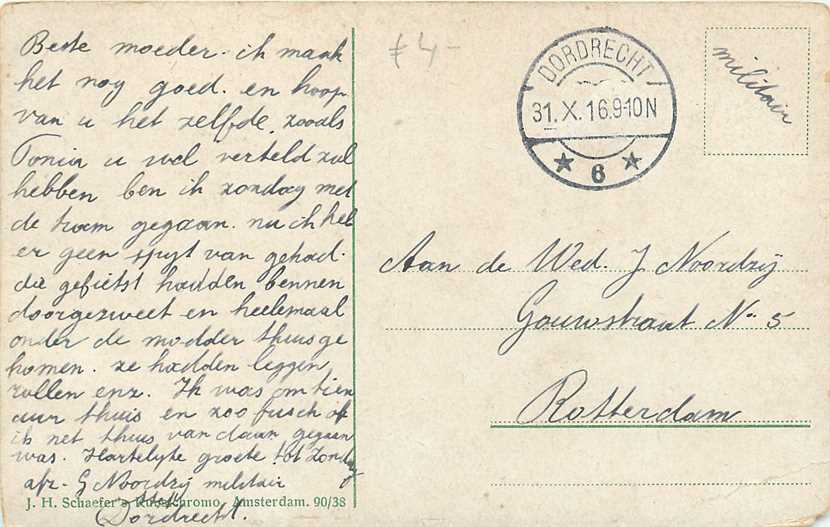 Beste moeder. ik maak
het nog goed. en hoop
van u het zelfde. zooals
Tonia u wel verteld zal
hebben ben ik zondag met
de tram gegaan. nu ik heb
er geen spyt van gehad.
die gefietst hadden bennen
doorgezweet en heelemaal
onder de modder thuis ge
komen. ze hadden leggen
rollen enz. Ik was om tien
uur thuis en zoo frisch of
ik net thuis van daan gegaan
was. Hartelyke groete tot Zondag
afz. G Noordzij militair
Dordrecht.
J. H. Schaefer's Kunstchromo, Amsterdam. 90/38
f 4-
DORDRECHT
31.X.16.9-10N
6
militair
Aan de Wed. J Noordzij
Gouwstraat No 5
Rotterdam